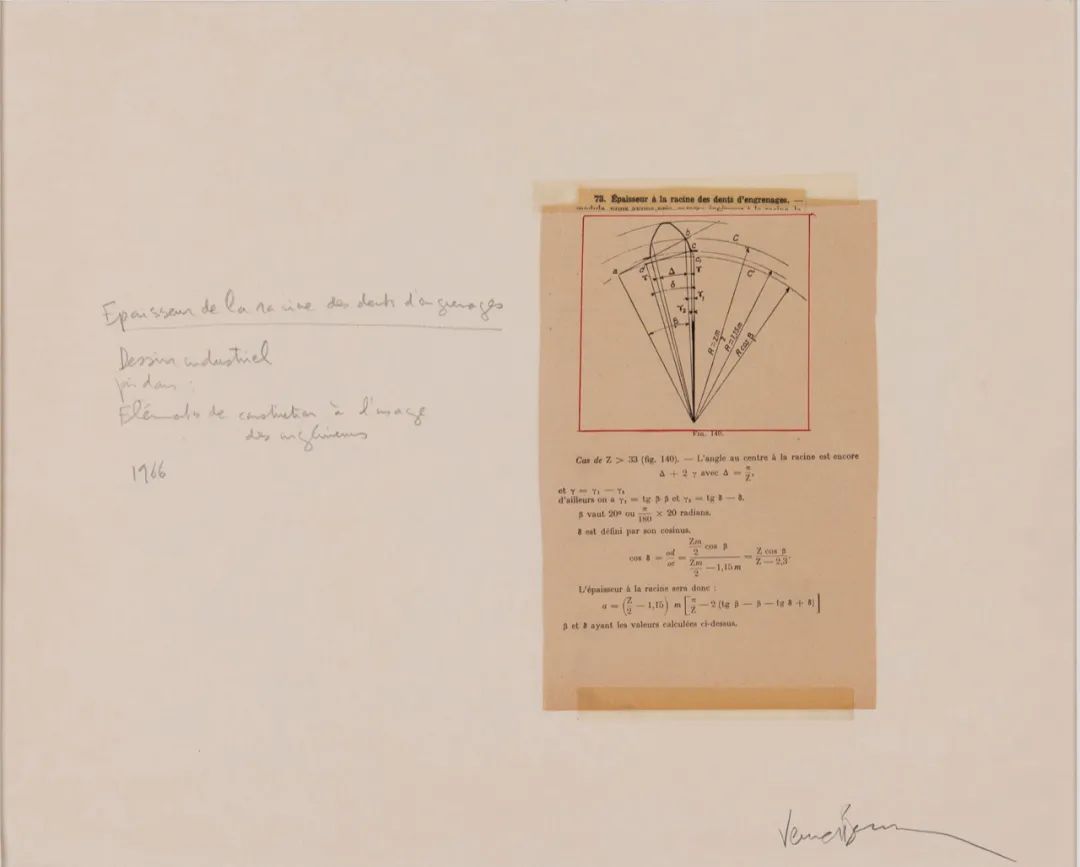 Epaisseur de la racine des dents d'angrenages
Dessin industriel
pris dans :
Eléments de construction à l'usage
des ingénieurs
1966
73. Épaisseur à la racine des dents d'engrenages. —
a
b
c
C
C
Δ
δ
γ
γ
γ₁
γ₂
β
R = Zm/2
R = 1,15m
R cos β
Fig. 140.
Cas de Z > 33 (fig. 140). — L'angle au centre à la racine est encore
Δ + 2 γ avec Δ = π/Z,
et γ = γ₁ — γ₂
d'ailleurs on a γ₁ = tg β β et γ₂ = tg δ — δ.
β vaut 20° ou π/180 × 20 radians.
δ est défini par son cosinus.
cos δ = od/oc = (Zm/2 cos β)/(Zm/2 — 1,15 m) = Z cos β/Z — 2,3.
L'épaisseur à la racine sera donc :
a = (Z/2 — 1,15) m [π/Z — 2 (tg β — β — tg δ + δ)]
β et δ ayant les valeurs calculées ci-dessus.